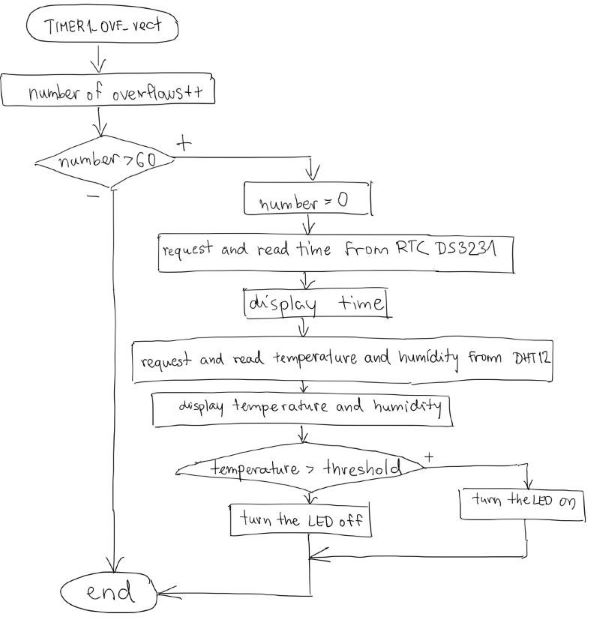 TIMER1_OVF_vect
number of overflows++
number > 60
+
-
number = 0
request and read time from RTC DS3231
display time
request and read temperature and humidity from DHT12
display temperature and humidity
temperature > threshold
+
turn the LED on
turn the LED off
end